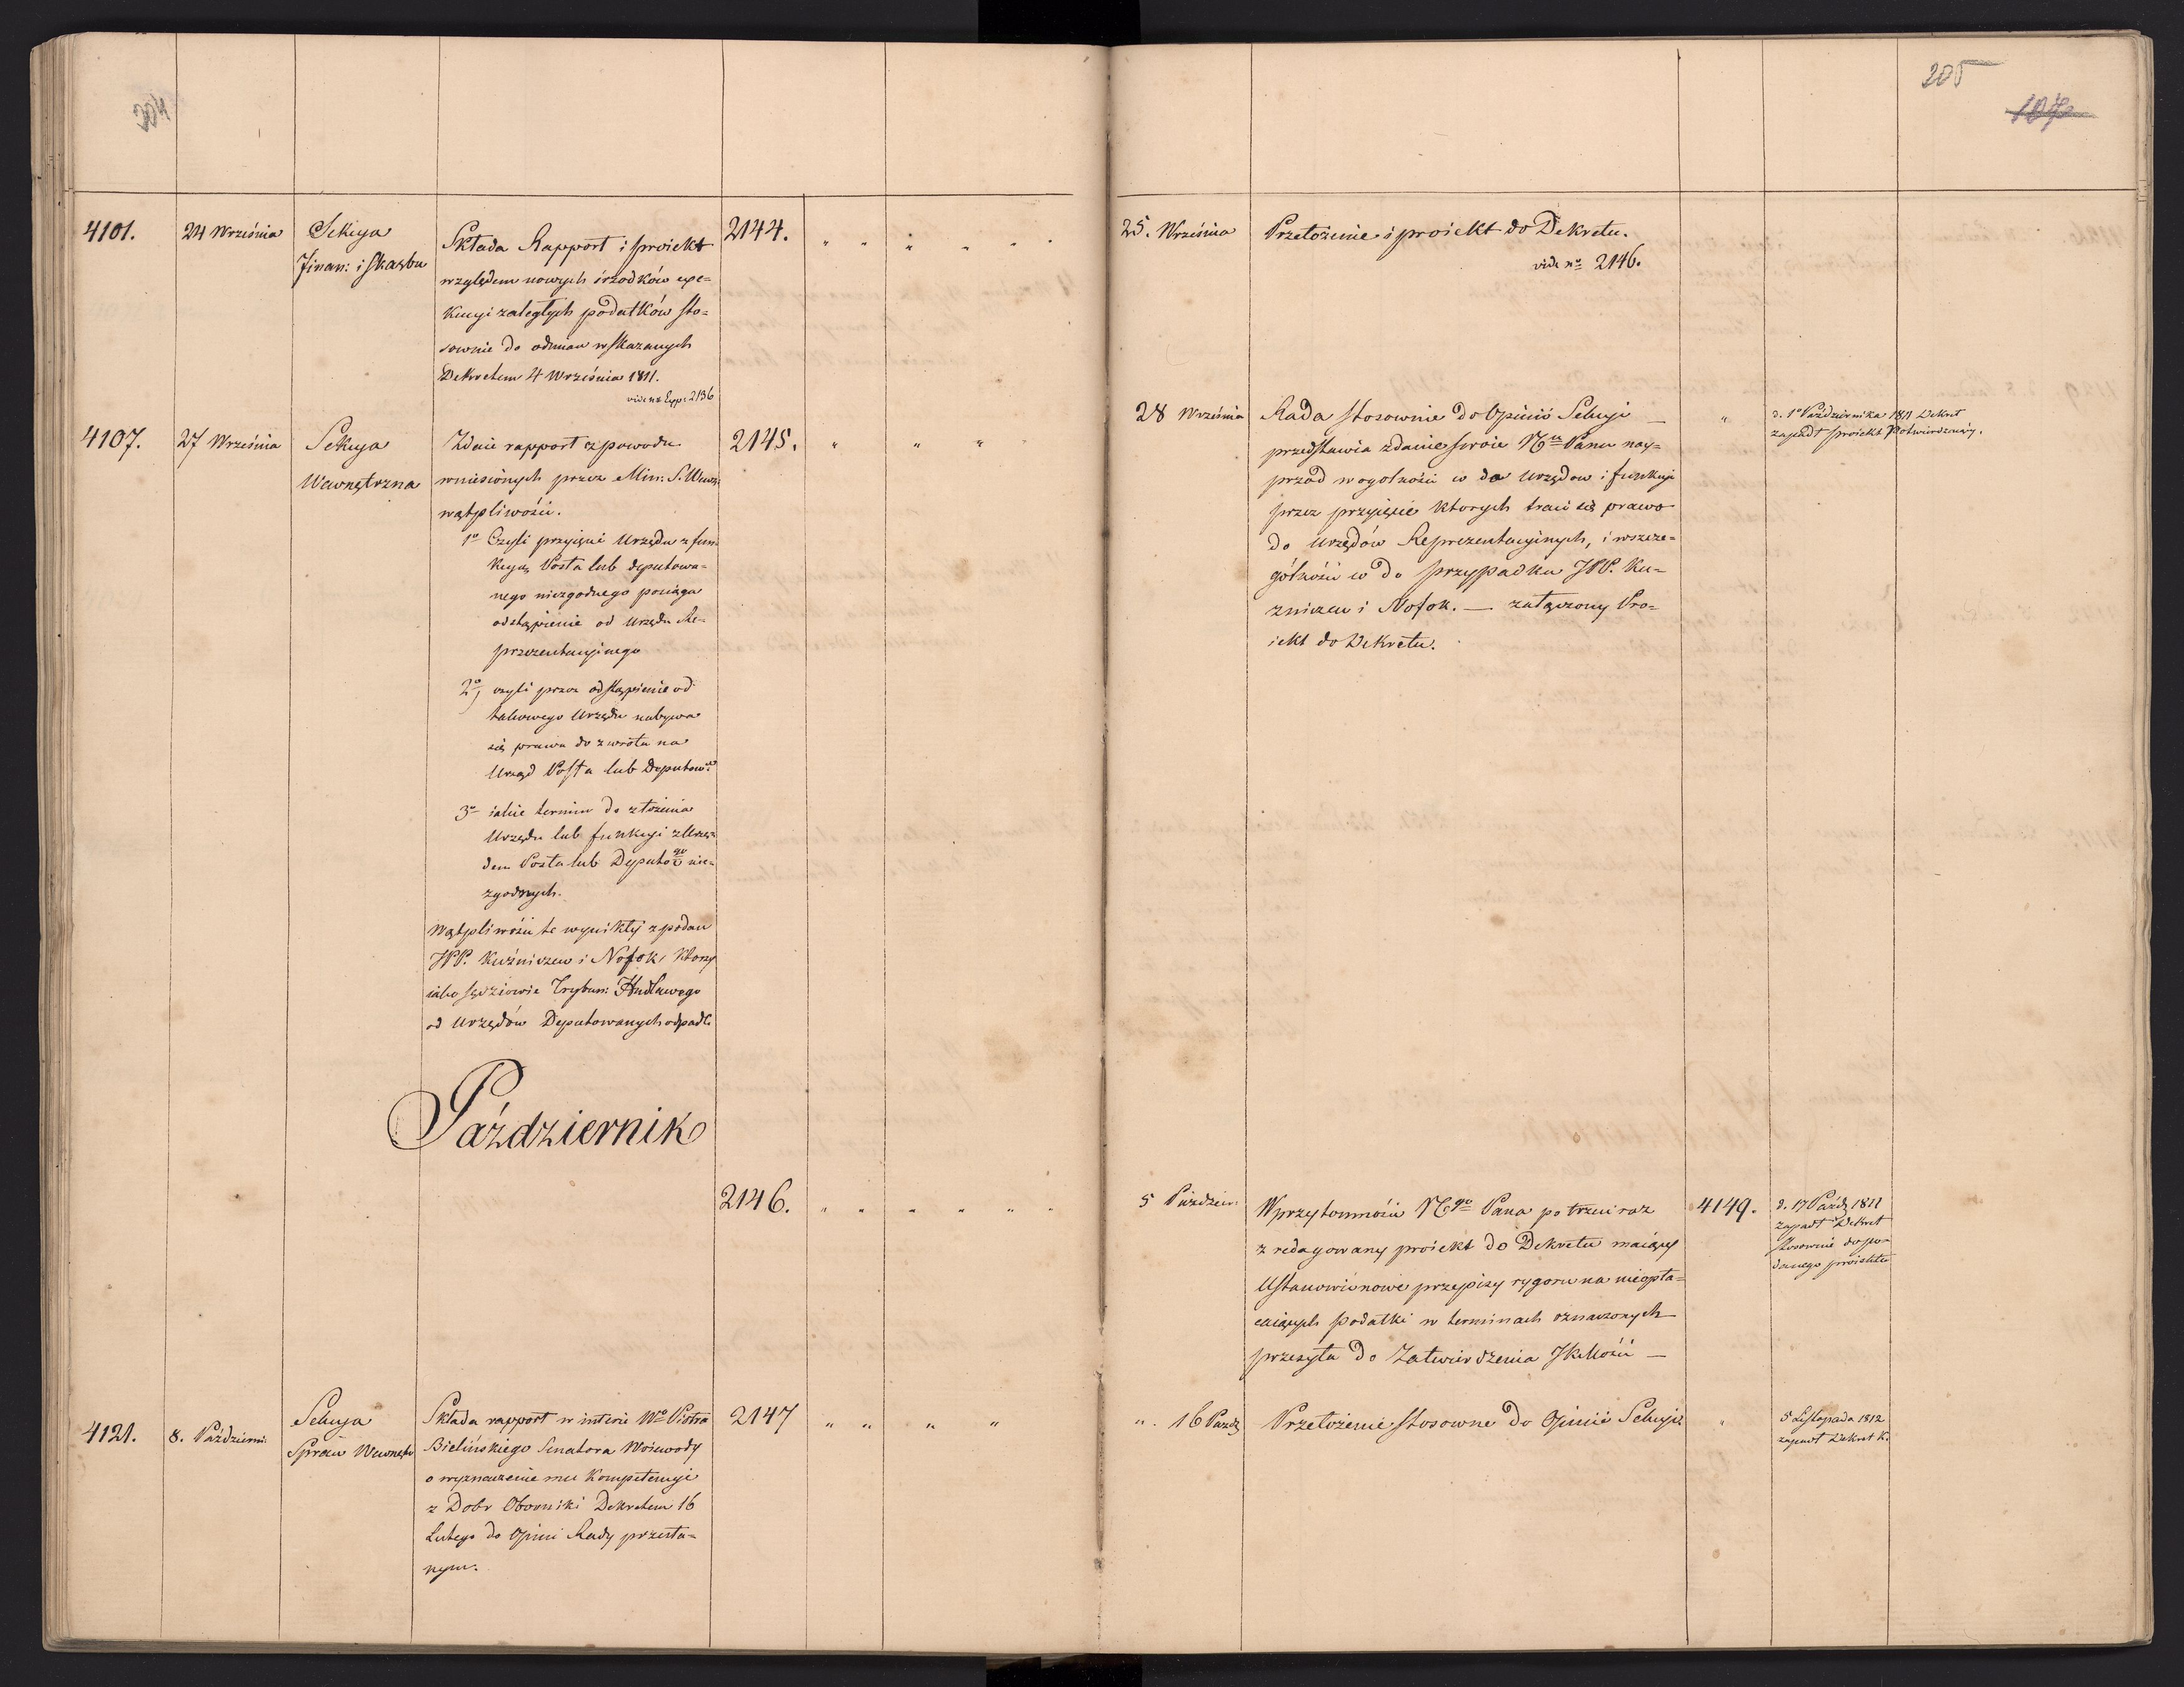 204
205
107
4101.
24 Września
Sekcya
Finan: i Skarbu
Składa Rapport i proiekt
względem nowych śrzodków exe=
kucyi zaległych podatków sto=
sownie do odmian wskazanych
Dekretem 4 Września 1811.
vide nr Exp: 2136
2144.
25. Września
Przełożenie i proiekt do Dekretu.
vide no 2146.
4107.
27 Września
Sekcya
Wewnętrzna
Zdaie rapport z powodu
wniesionych przez Min: S. Wewn:
wątpliwości.
1o Czyli przyięcie Urzędu z fun=
kcyą Posła lub deputowa=
nego niezgodnego pociąga
odstąpienie od Urzędu Re=
prezentacyinego
2o, czyli przez odstąpienie od
takowego Urzędu nabywa
się prawa do zwrotu na
Urząd Posła lub Deputow:
3o iakie termin do złożenia
Urzędu lub funkcyi z Urzę=
dem Posła lub Deputo go nie=
zgodnych.
Wątpliwości te wynikły z podań
JPP. Kuźniczew i Nofok, którzy
iako sędziowie Trybun: Handlowego
od Urzędów Deputowanych odpadli
2145.
28 Września
Rada stosownie do Opinii Sekcyi —
przedstawia zdanie swoie Nmu Panu nay=
przód w ogolności co do Urzędow i funkcyi
przez przyięcie ktorych traci się prawo
do Urzędów Reprezentacyinych, i w szcze=
gólności co do przypadku JPP. Ku=
zniczew i Nofok. — załączony Pro=
iekt do Dekretu.
d. 1o Października 1811 Dekret
zapadł proiekt Potwierdzaiący.
Październik
2146.
5 Paździer:
W przytomności Ngo Pana po trzeci raz
zredagowany proiekt do Dekretu maiący
Ustanowić nowe przepisy rygoru na nieopła=
caiących podatki w terminach oznaczonych
przesyła do Zatwierdzenia JKMości —
4149.
d. 17 Paźdz 1811
zapadł Dekret
stosownie do po=
danego proiektu
4121.
8. Październi:
Sekcya
Spraw Wewnętr
Składa rapport w intersie Wo Piotra
Bielińskiego Senatora Woiewody
o wyznaczenie mu Kompetencyi
z Dobr Oborniki Dekretem 16
Lutego do Opinii Rady przesła=
nym.
2147
". 16 Paźdz
Przełożenie stosowne do Opinii Sekcyi
5 Listopada 1812
zapadł Dekret K.